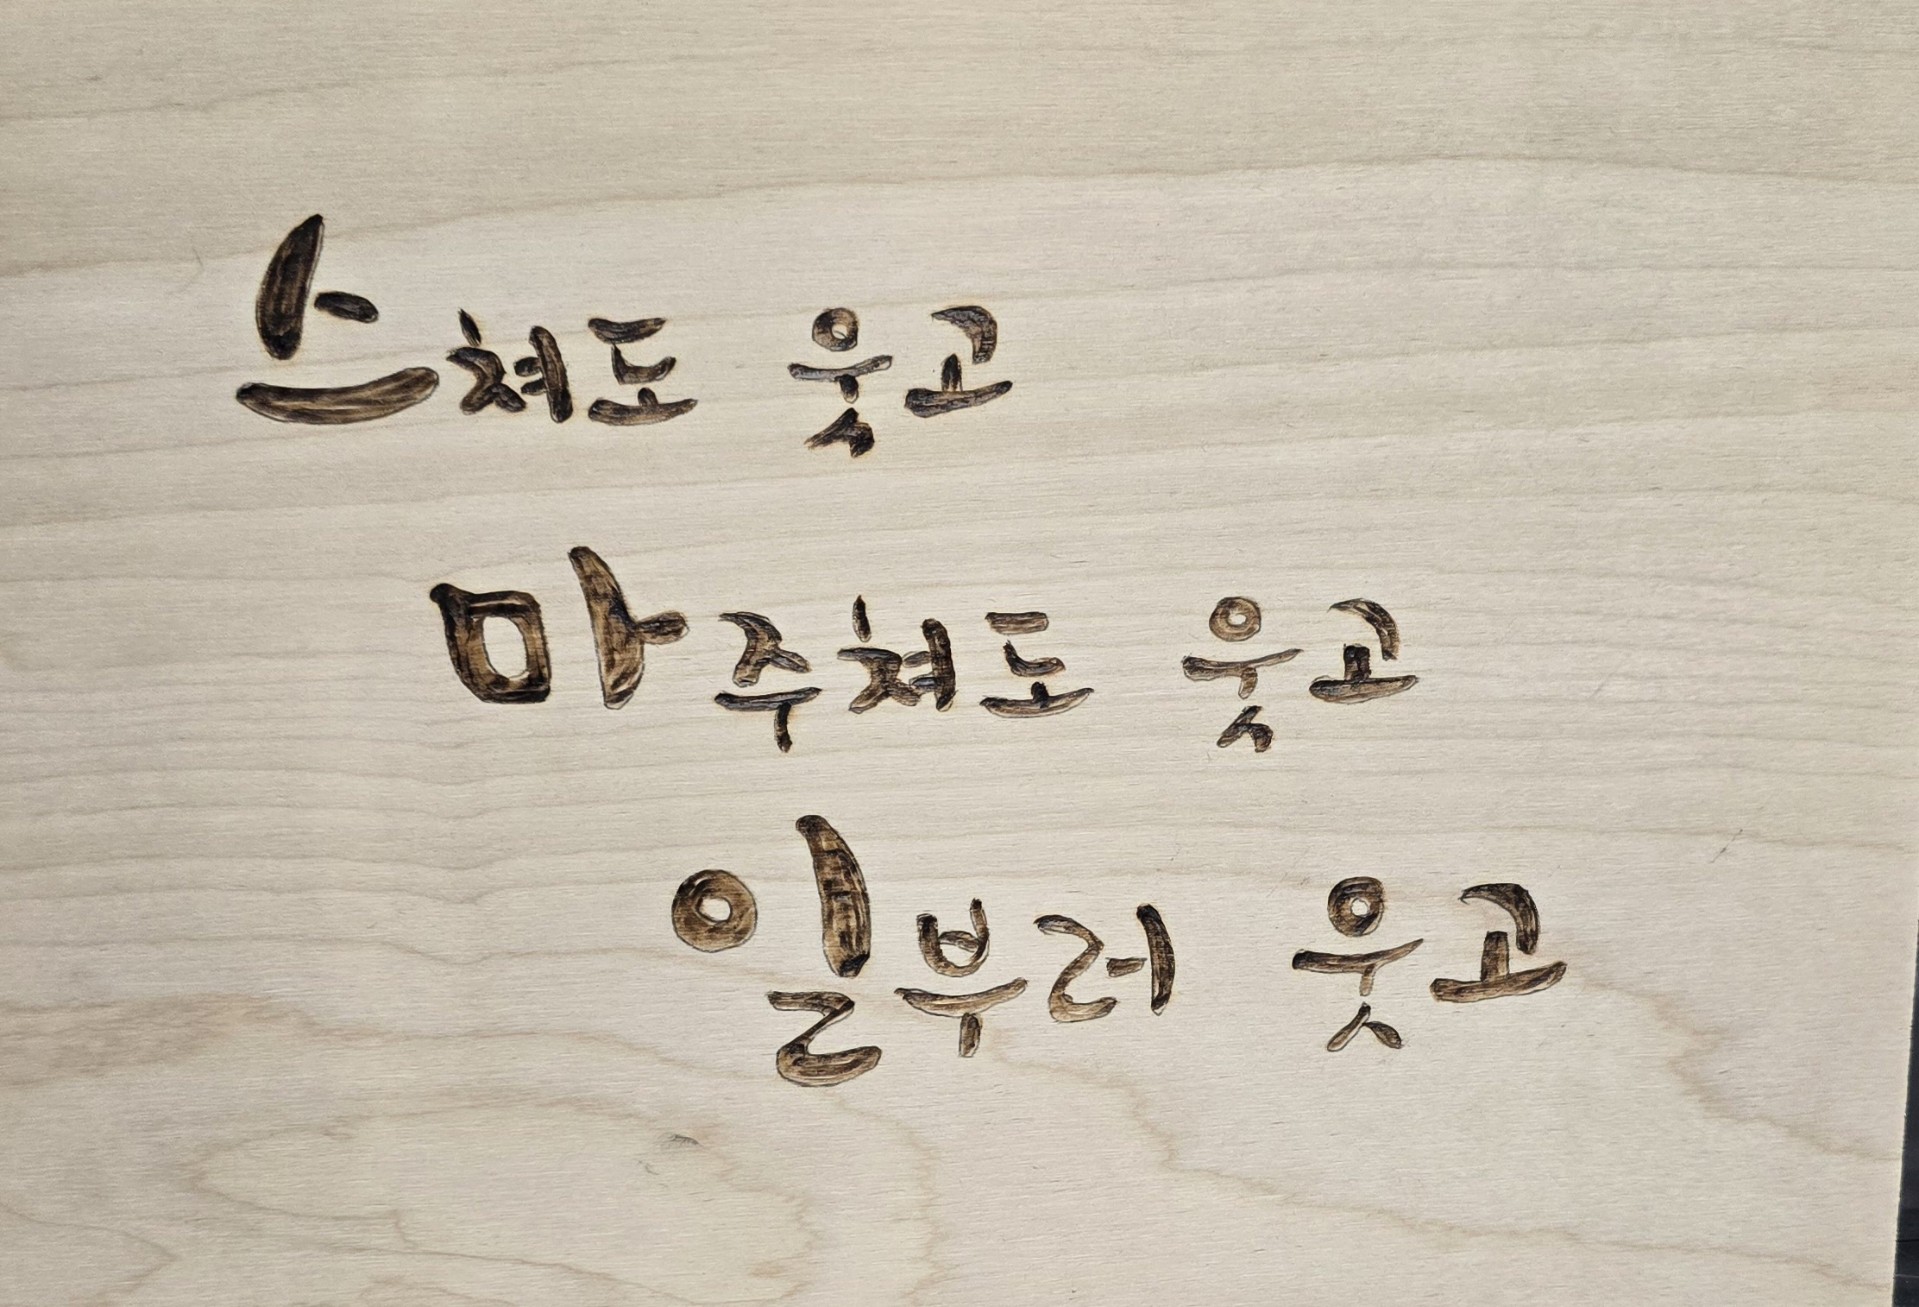 스쳐도 웃고
마주쳐도 웃고
일부러 웃고